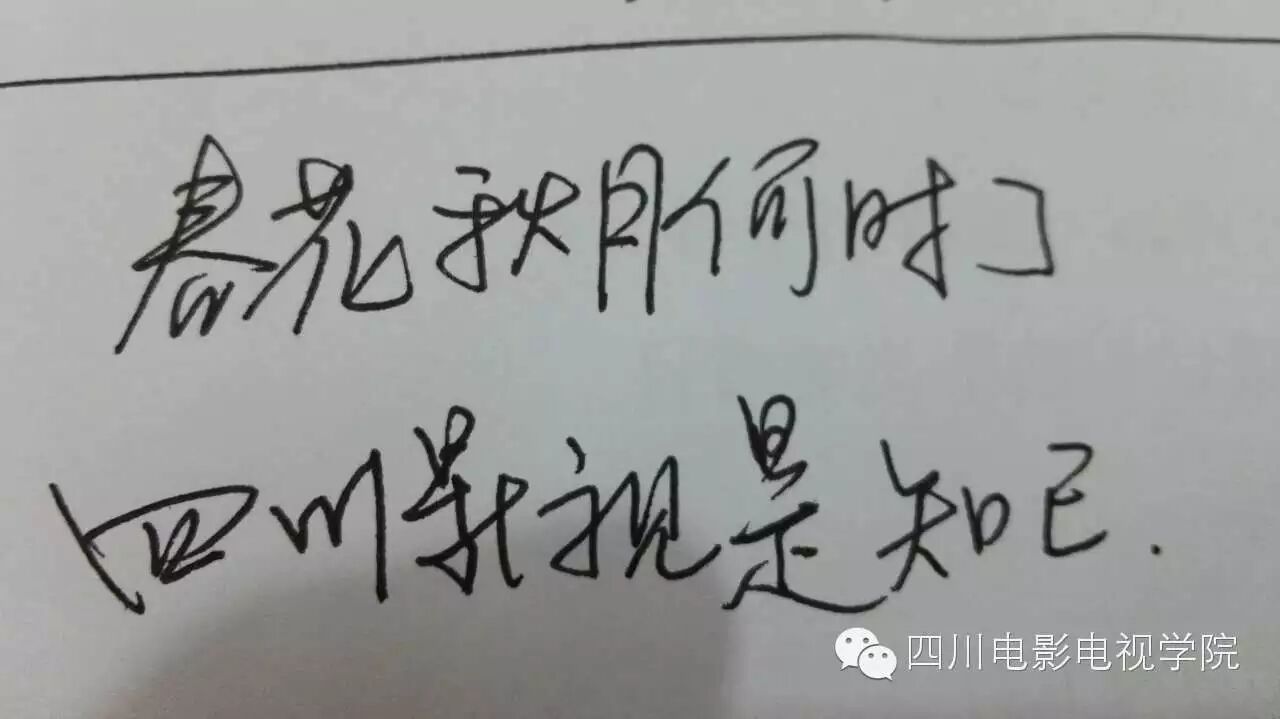 春花秋月何时了
四川影视是知己.
四川电影电视学院